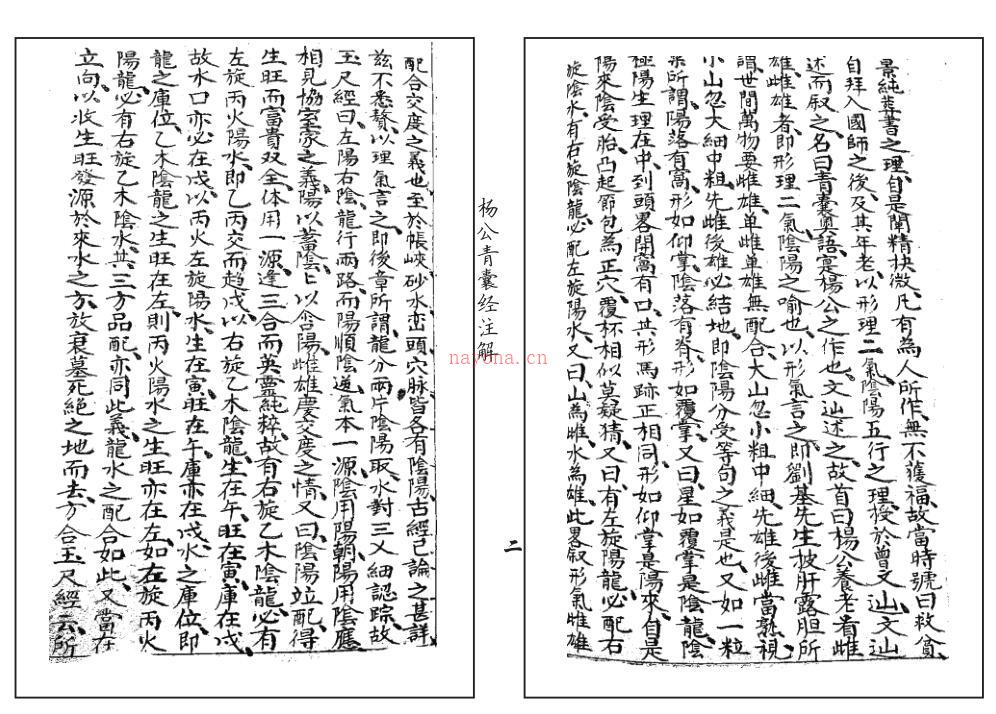 景純葬書之理自是闡精抉微凡有為人所作無不獲福故當時號曰救貧
自拜入國師之後及其年老以形理二氣陰陽五行之理授於曾文辿文辿
述而叙之名曰青囊奧語寔楊公之作也文辿述之故首曰楊公養老看雌
雄雌雄者即形理二氣陰陽之喻也以形氣言之即劉基先生披肝露胆所
謂世間萬物要雌雄单雌单雄無配合大山忽小粗中細先雄後雌當熟視
小山忽大細中粗先雌後雄必結地即陰陽分受等句之義是也又如一粒
粟所謂陽落有窩形如仰掌陰落有脊形如覆掌又曰星如覆掌是陰龍陰
極陽生理在中到頭畧開窩有口其形馬跡正相同形如仰掌是陽來自是
陽來陰受胎凸起節包為正穴覆杯相似莫疑猜又曰有左旋陽龍必配右
旋陰水有右旋陰龍必配左旋陽水又曰山為雌水為雄此畧叙形氣雌雄
杨公青囊经注解
二
nayona.cn
配合交度之義也至於帳峽砂水巒頭穴脉皆各有陰陽古經已論之甚詳
兹不悉贅以理氣言之即後章所謂龍分兩片陰陽取水對三乂細認踪故
玉尺經曰左陽右陰龍行兩路而陽順陰逆氣本一源陰用陽朝陽用陰應
相見協室家之義陽以蓄陰陰以含陽雌雄慶交度之情又曰陰陽竝配得
生旺而富貴双全体用一源逢三合而英靈純粹故有右旋乙木陰龍必有
左旋丙火陽水即乙丙交而趋戌以右旋乙木陰龍生在午旺在寅庫在戌
故水口亦必在戌以丙火左旋陽水生在寅旺在午庫亦在戌水之庫位即
龍之庫位乙木陰龍之生旺在左則丙火陽水之生旺亦在左如左旋丙火
陽龍必有右旋乙木陰水其三方品配亦同此義龍水之配合如此又當在
立向以收生旺發源於來水之方放衰墓死絕之地而去方合玉尺經云所